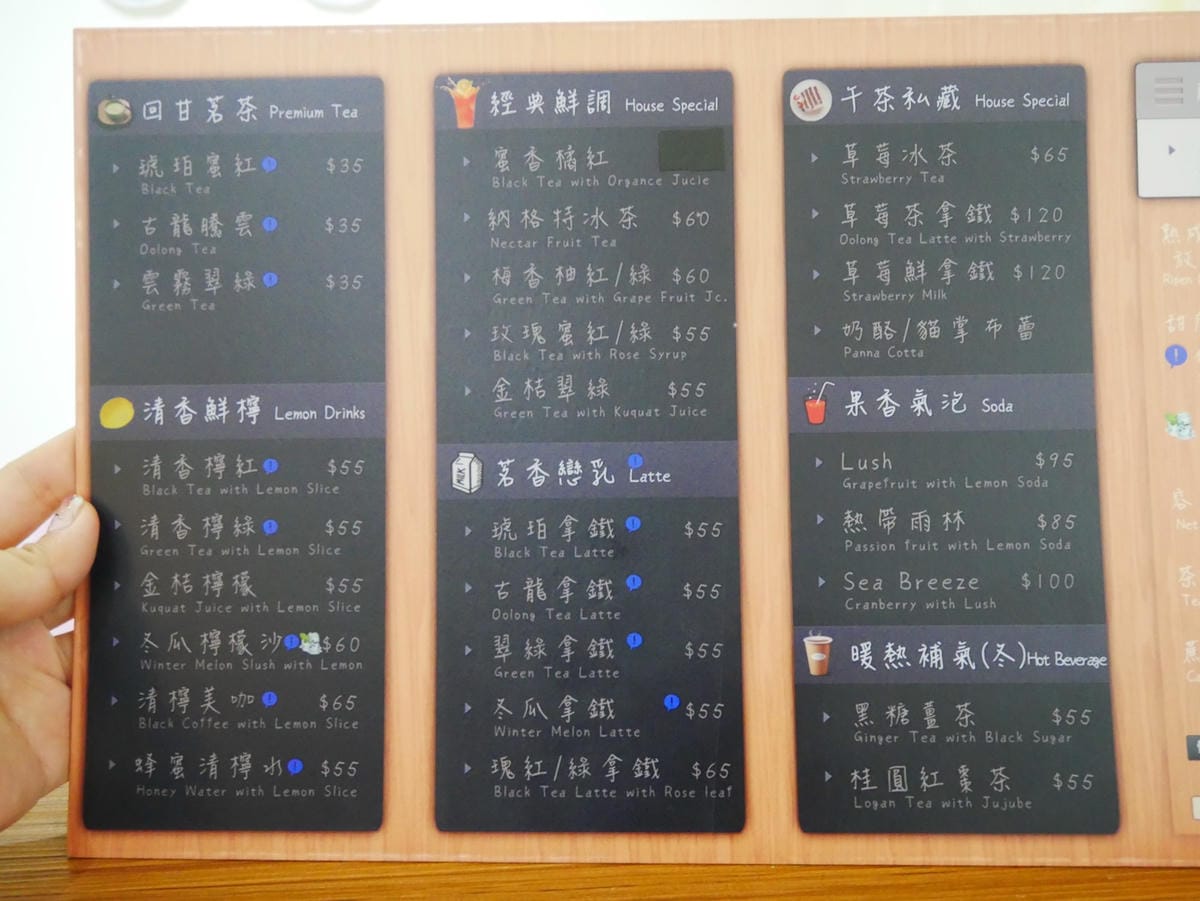 回甘茗茶 Premium Tea
琥珀蜜紅 $35
Black Tea
古龍騰雲 $35
Oolong Tea
雲霧翠綠 $35
Green Tea
清香鮮檸 Lemon Drinks
清香檸紅 $55
Black Tea with Lemon Slice
清香檸綠 $55
Green Tea with Lemon Slice
金桔檸檬 $55
Kuquat Juice with Lemon Slice
冬瓜檸檬沙 $60
Winter Melon Slush with Lemon
清檸美咖 $65
Black Coffee with Lemon Slice
蜂蜜清檸水 $55
Honey Water with Lemon Slice
經典鮮調 House Special
蜜香橘紅
Black Tea with Organce Jucie
納格特冰茶 $60
Nectar Fruit Tea
梅香柚紅/綠 $60
Green Tea with Grape Fruit Jc.
玫瑰蜜紅/綠 $55
Black Tea with Rose Syrup
金桔翠綠 $55
Green Tea with Kuquat Juice
MILK
茗香戀乳 Latte
琥珀拿鐵 $55
Black Tea Latte
古龍拿鐵 $55
Oolong Tea Latte
翠綠拿鐵 $55
Green Tea Latte
冬瓜拿鐵 $55
Winter Melon Latte
瑰紅/綠拿鐵 $65
Black Tea Latte with Rose leaf
午茶私藏 House Special
草莓冰茶 $65
Strawberry Tea
草莓茶拿鐵 $120
Oolong Tea Latte with Strawberry
草莓鮮拿鐵 $120
Strawberry Milk
奶酪/貓掌布蕾
Panna Cotta
果香氣泡 Soda
Lush $95
Grapefruit with Lemon Soda
熱帶雨林 $85
Passion fruit with Lemon Soda
Sea Breeze $100
Cranberry with Lush
暖熱補氣(冬) Hot Beverage
黑糖薑茶 $55
Ginger Tea with Black Sugar
桂圓紅棗茶 $55
Logan Tea with Jujube
熟成
Ripen
甜
Net
茶